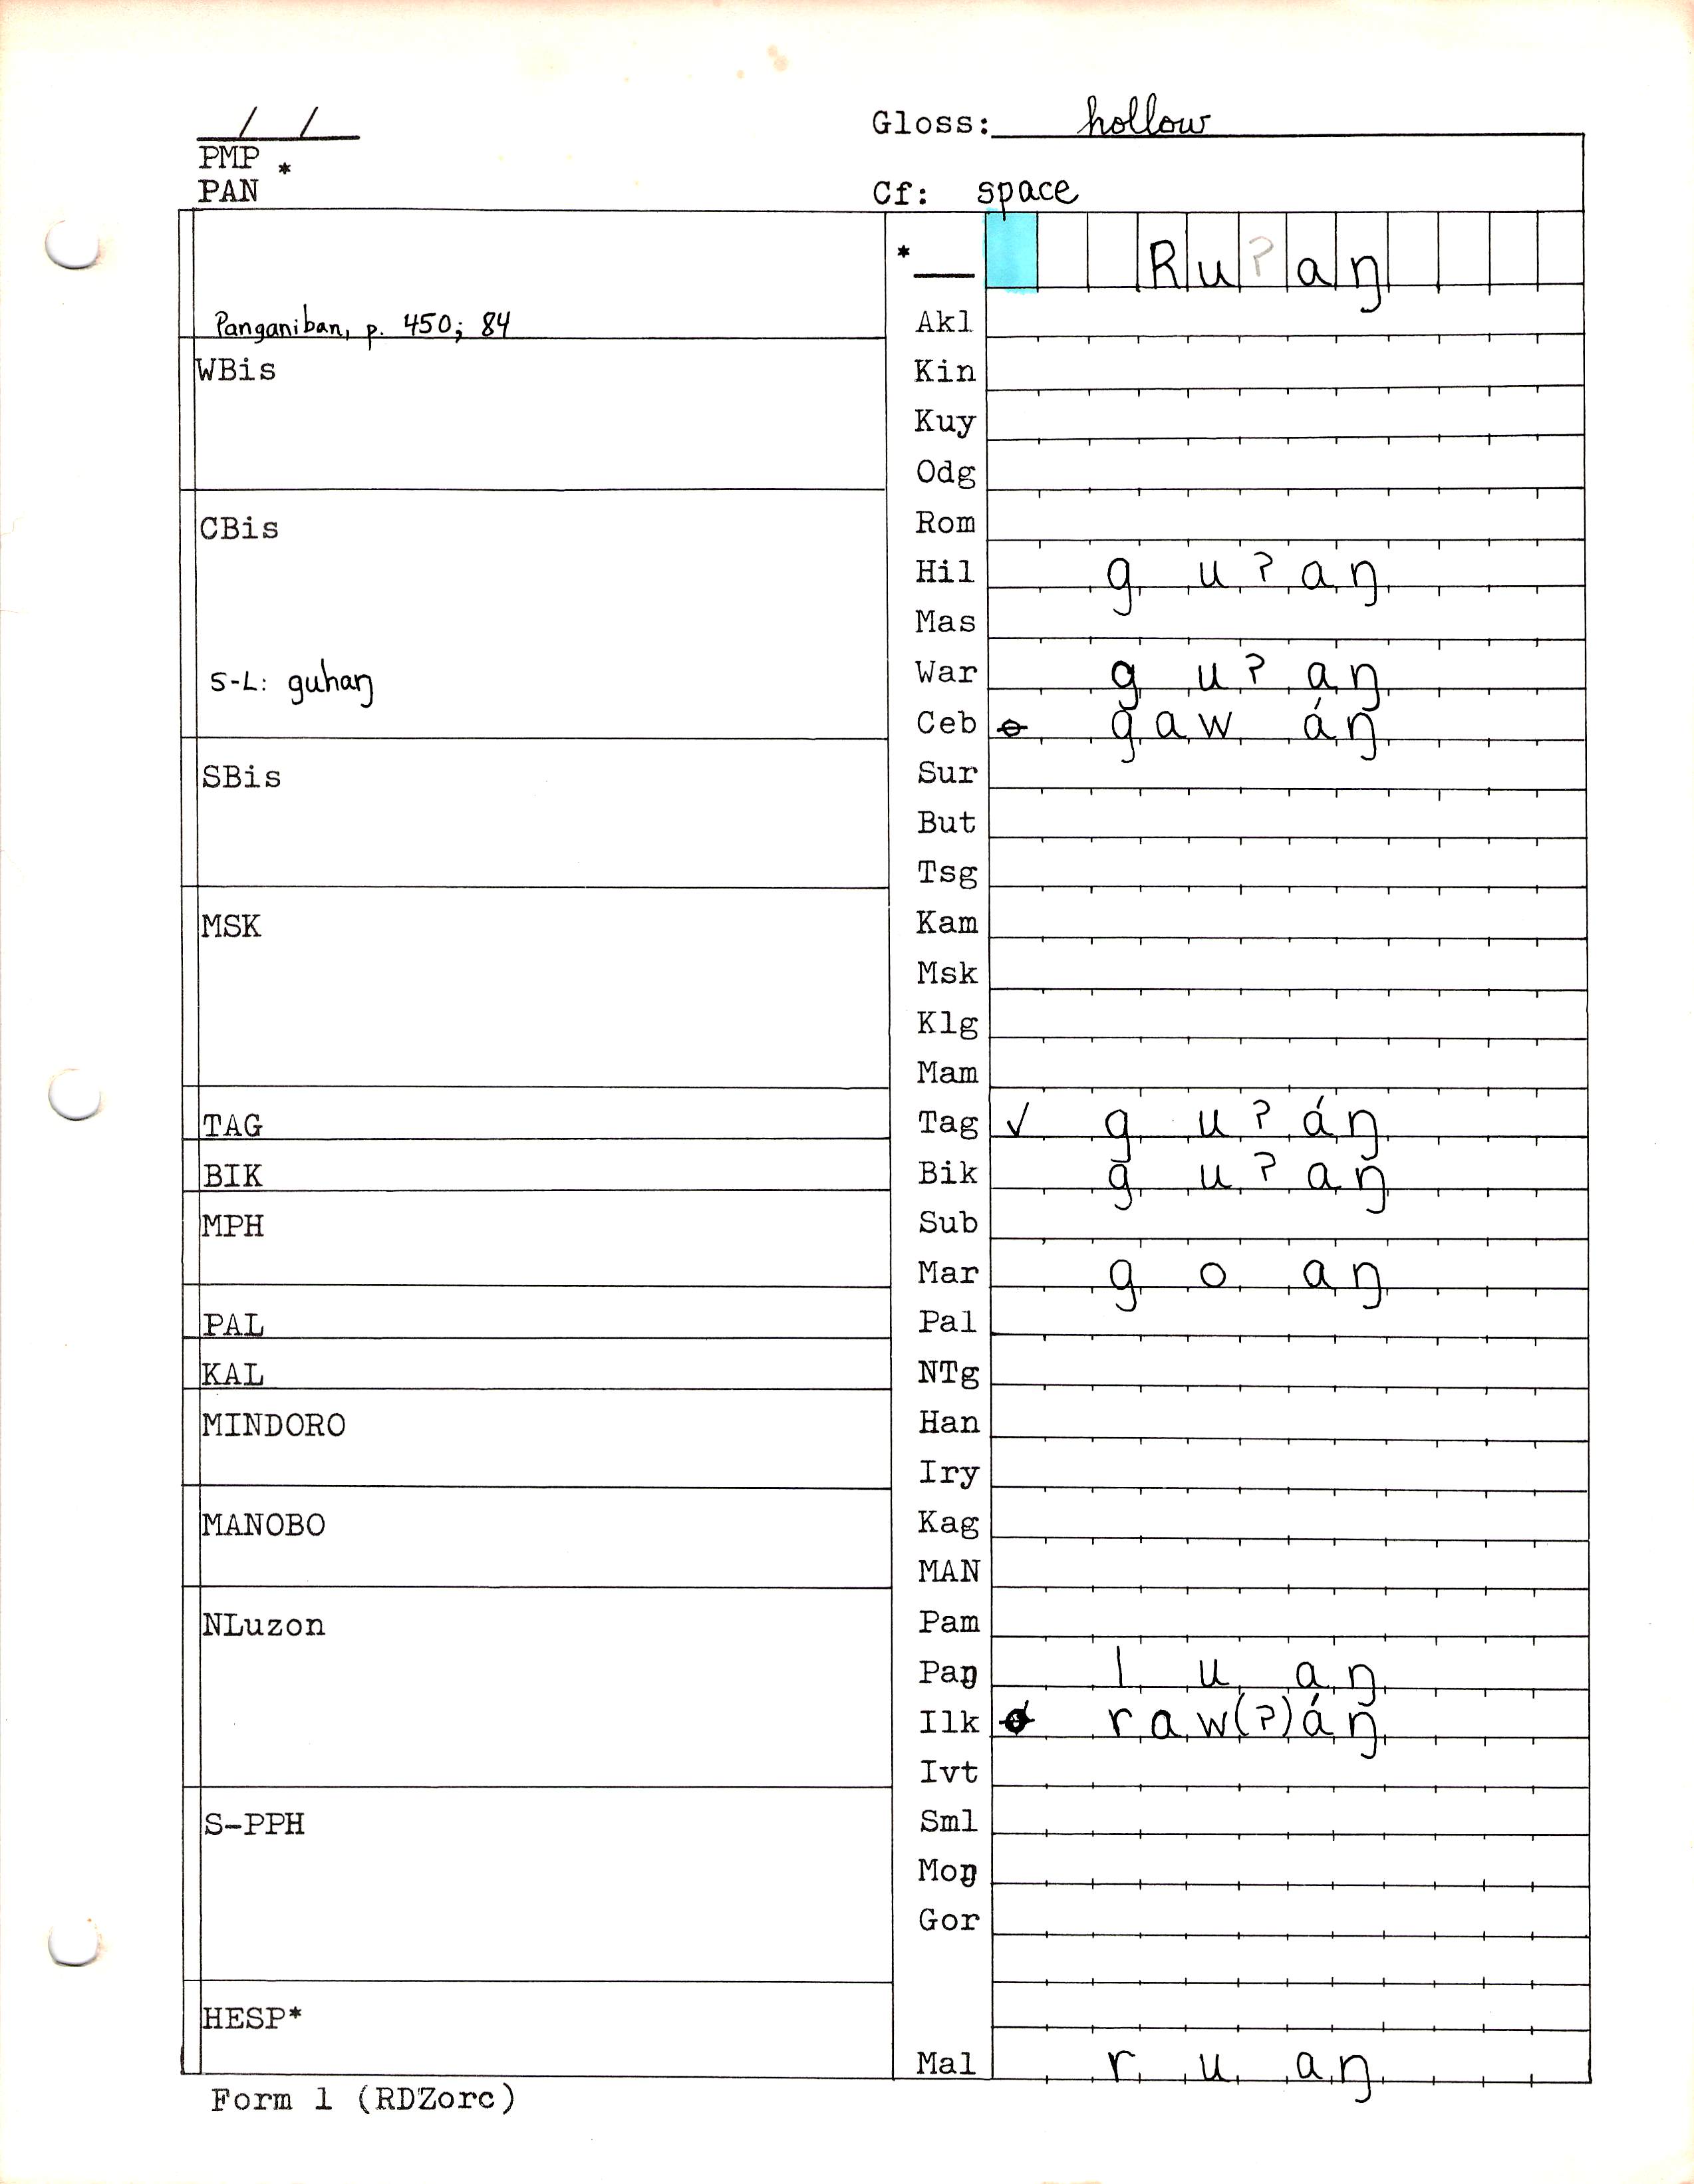 / /
Gloss: hollow
PMP *
PAN
Cf: space
* Ruʔaŋ
Panganiban, p. 450; 84
Akl
WBis
Kin
Kuy
Odg
CBis
Rom
Hil guʔaŋ
Mas
S-L: guhaŋ
War guʔaŋ
Ceb gawáŋ
SBis
Sur
But
Tsg
MSK
Kam
Msk
Klg
Mam
TAG
Tag ✓ guʔáŋ
BIK
Bik guʔaŋ
MPH
Sub
Mar goaŋ
PAL
Pal
KAL
NTg
MINDORO
Han
Iry
MANOBO
Kag
MAN
NLuzon
Pam
Paŋ luaŋ
Ilk raw(ʔ)áŋ
Ivt
S-PPH
Sml
Moŋ
Gor
HESP*
Mal ruaŋ
Form 1 (RDZorc)